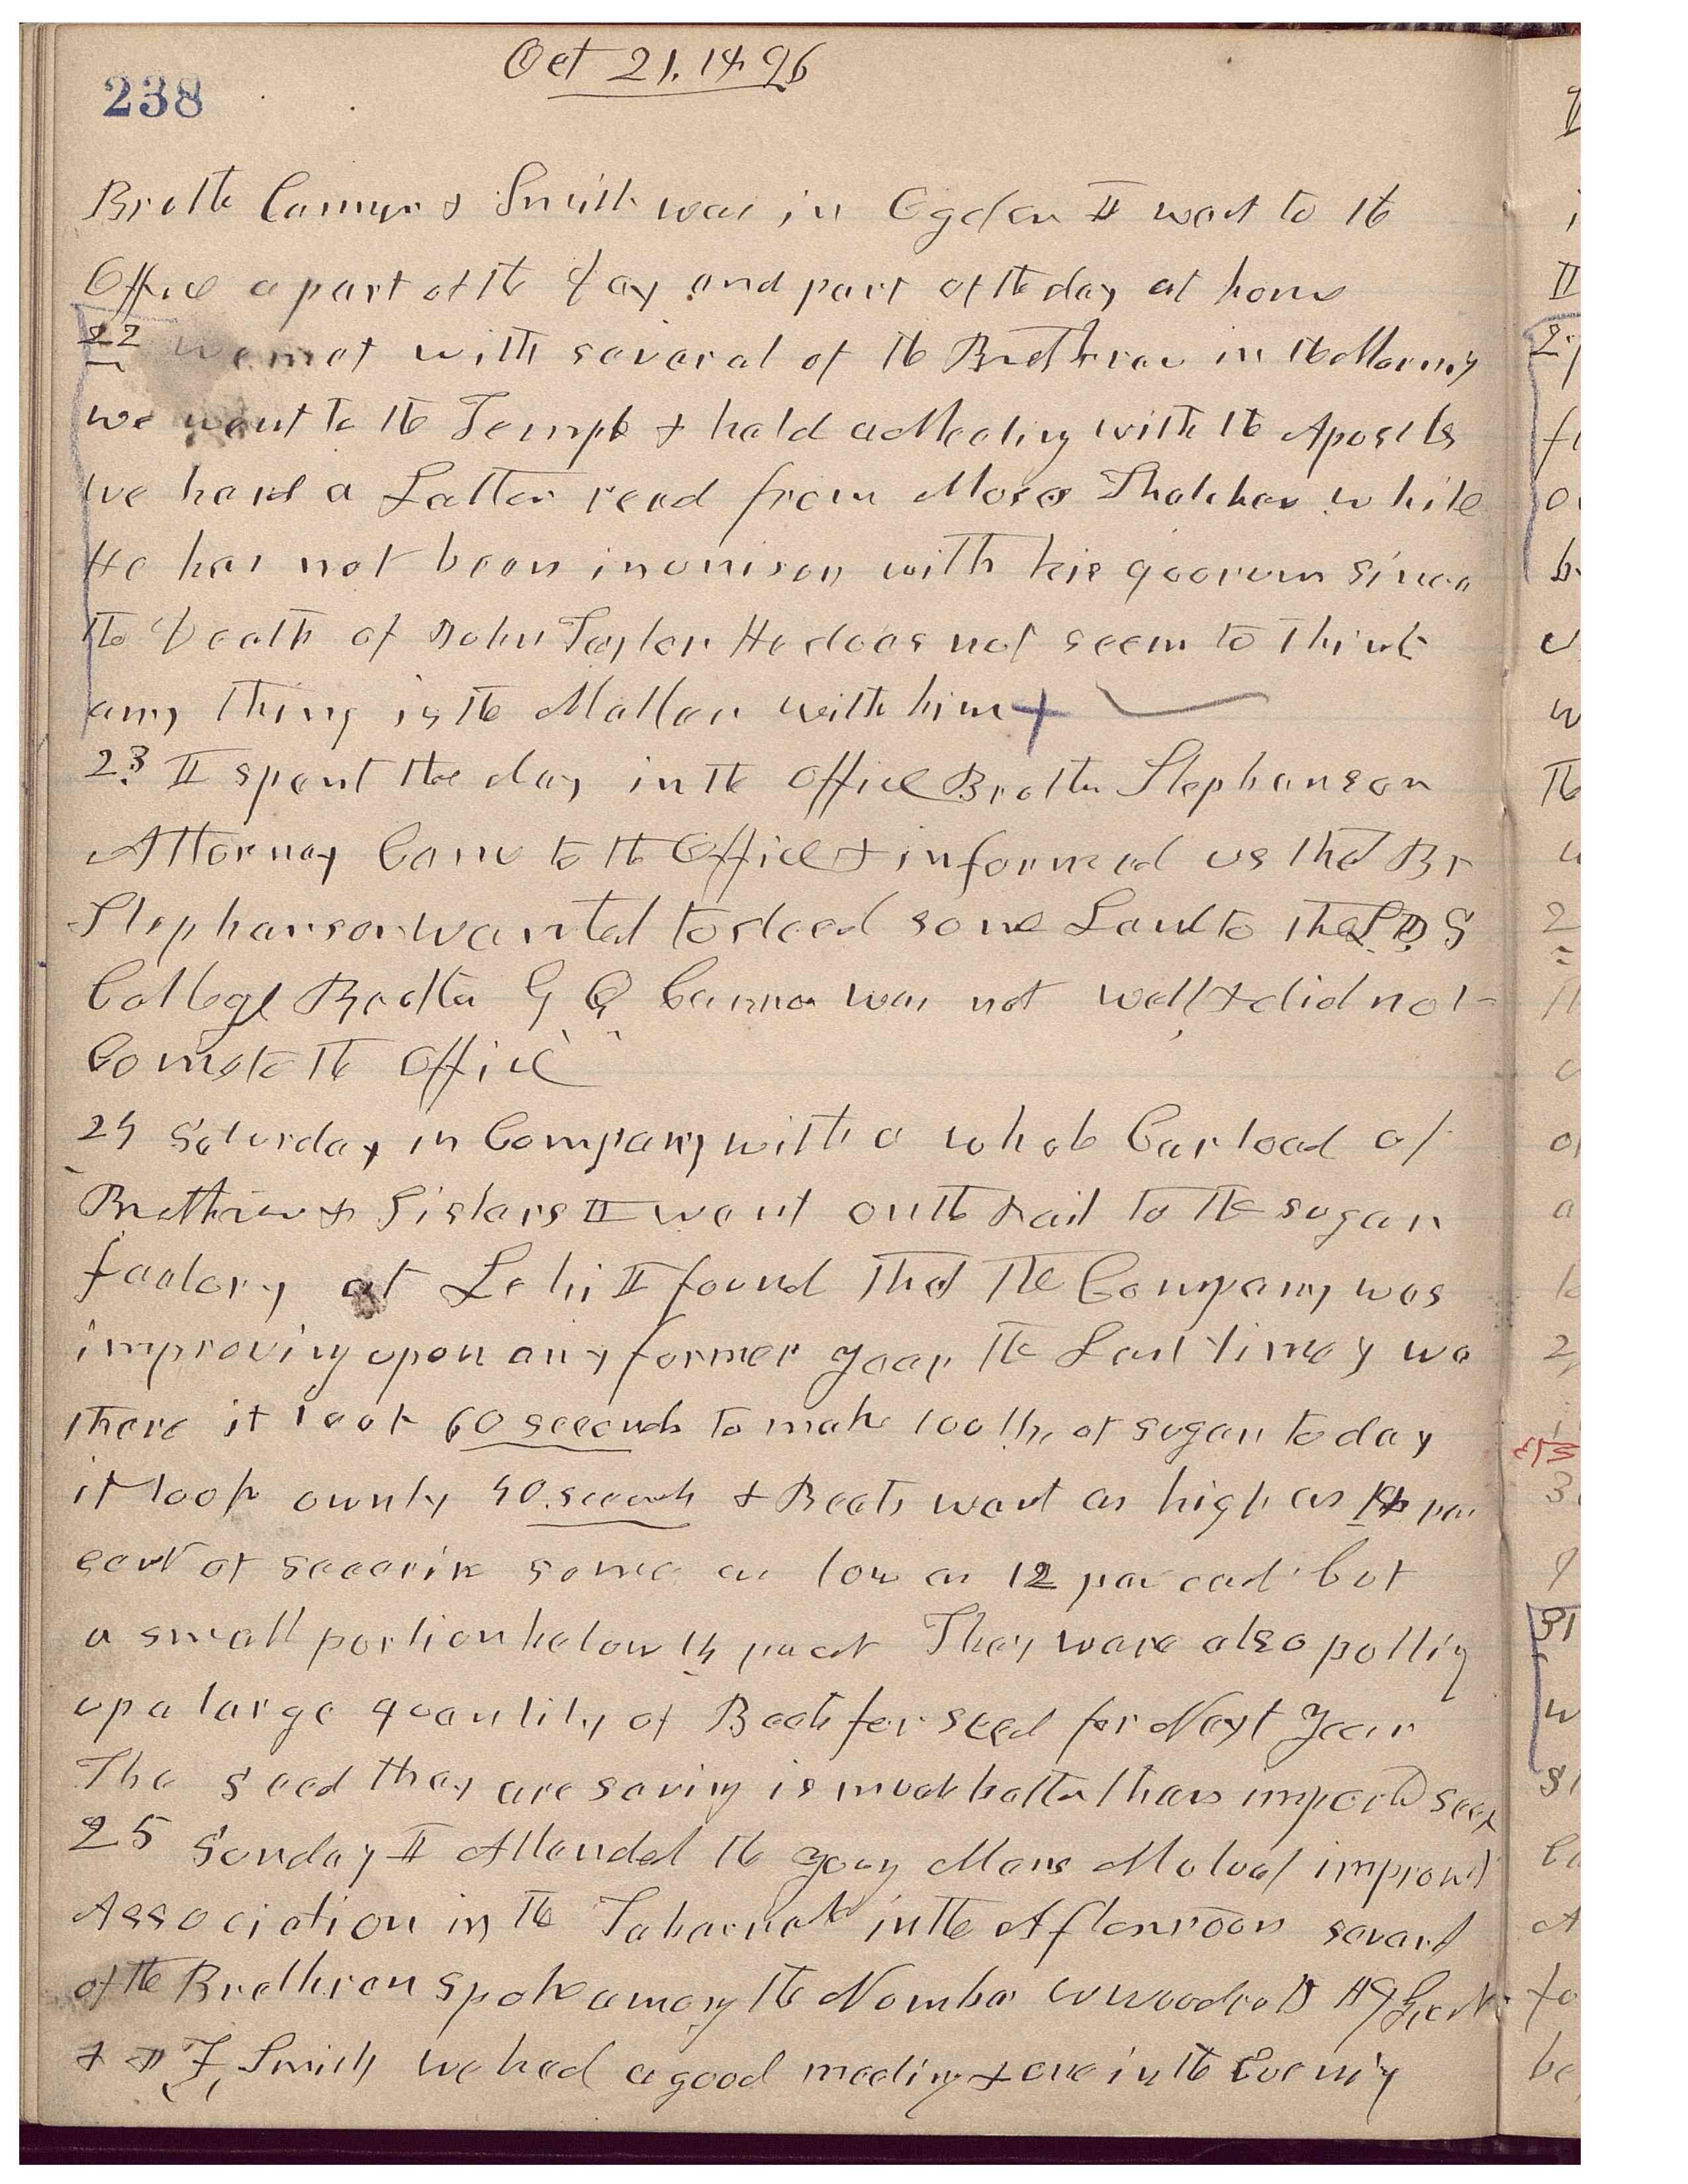 238
Oct 21, 1896
Brothr Cannon & Smith was in Ogden I went to the
Office a part of the day and part of the day at home
22 we met with several of the Brethren in the Morning
we went to the Temple & held a Meeting with the Apostles
we had a Letter read from Moses Thatcher while
He has not been in unison with his quorum since
the Death of John Taylor He does not seem to think
any thing is the Matter with him
23 I spent the day in the office Brother Stephenson
Attorney Came to the Office & informed us that Br
Stephenson wanted to deed some Land to the L D S
College Brother G Q Cannon was not well & did not
Come to the Office
24 Saturday in Company with a whole Car load of
Brethren & Sisters I went on the rail to the sugar
factory at Lehi I found that the Company was
improving upon any former year the Last time I was
there it took 60 seconds to make 100 lbs of sugar to day
it took ownly 40 seconds & Beets went as high as per
cent of some as low as 12 per cent but
a small portion below 14 per cent They ware also putting
up a large quantity of Beets for seed for Next Year
The seed they are saving is much better than imported seed
25 Sunday I Attended the Young Mens Mutual improvmt
Association in the Tabernacle in the Afternoon several
of the Brethren spoke among the Number W Woodruff H J Grant
& J F Smith we had a good meeting & one in the Evening